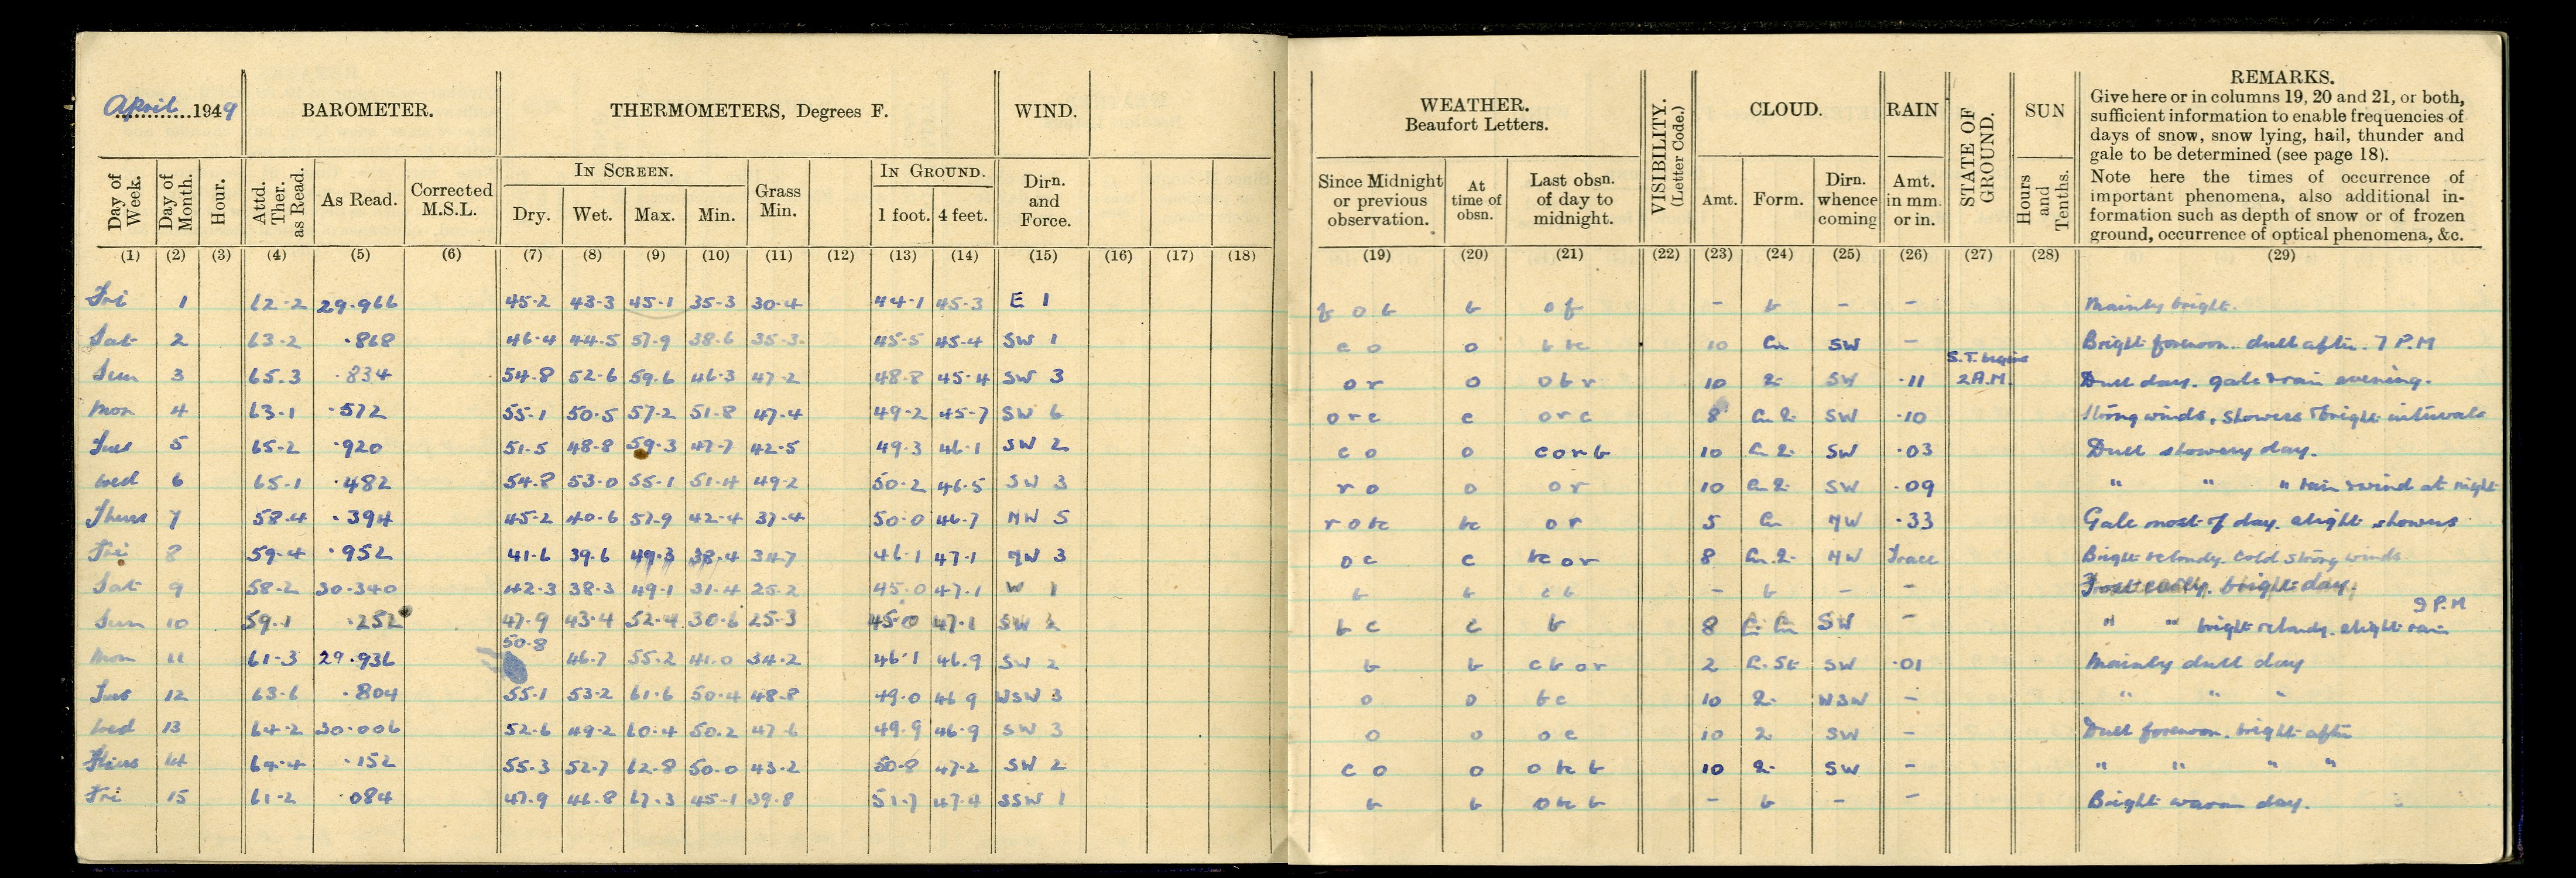 April 1949 BAROMETER. THERMOMETERS, Degrees F. WIND.
Day of Week. Day of Month. Hour. Attd. Ther. as Read. As Read. Corrected M.S.L. IN SCREEN. Dry. Wet. Max. Min. Grass Min. IN GROUND. 1 foot. 4 feet. Dirn. and Force.
(1) (2) (3) (4) (5) (6) (7) (8) (9) (10) (11) (12) (13) (14) (15) (16) (17) (18)
Fri 1 62.2 29.966 45.2 43.3 45.1 35.3 30.4 44.1 45.3 E 1
Sat 2 63.2 .868 46.4 44.5 57.9 38.6 35.3 45.5 45.4 SW 1
Sun 3 65.3 .834 54.8 52.6 59.6 46.3 47.2 48.8 45.4 SW 3
Mon 4 63.1 .572 55.1 50.5 57.2 51.8 47.4 49.2 45.7 SW 6
Tues 5 65.2 .920 51.5 48.8 59.3 47.7 42.5 49.3 46.1 SW 2
Wed 6 65.1 .482 54.8 53.0 55.1 51.4 49.2 50.2 46.5 SW 3
Thurs 7 58.4 .394 45.2 40.6 57.9 42.4 37.4 50.0 46.7 NW 5
Fri 8 59.4 .952 41.6 39.6 49.3 38.4 34.7 46.1 47.1 NW 3
Sat 9 58.2 30.340 42.3 38.3 49.1 31.4 25.2 45.0 47.1 W 1
Sun 10 59.1 .252 47.9 43.4 52.4 30.6 25.3 45.0 47.1 SW 2
Mon 11 61.3 29.936 50.8 46.7 55.2 41.0 34.2 46.1 46.9 SW 2
Tues 12 63.6 .804 55.1 53.2 61.6 50.4 48.8 49.0 46.9 WSW 3
Wed 13 64.2 30.006 52.6 49.2 60.4 50.2 47.6 49.9 46.9 SW 3
Thurs 14 64.4 .152 55.3 52.7 62.8 50.0 43.2 50.8 47.2 SW 2
Fri 15 61.2 .084 47.9 46.8 67.3 45.1 39.8 51.7 47.4 SSW 1
WEATHER. Beaufort Letters. VISIBILITY. (Letter Code.) CLOUD. RAIN STATE OF GROUND. SUN REMARKS.
Give here or in columns 19, 20 and 21, or both,
sufficient information to enable frequencies of
days of snow, snow lying, hail, thunder and
gale to be determined (see page 18).
Note here the times of occurrence of
important phenomena, also additional in-
formation such as depth of snow or of frozen
ground, occurrence of optical phenomena, &c.
Since Midnight or previous observation. At time of obsn. Last obsn. of day to midnight. Amt. Form. Dirn. whence coming Amt. in mm. or in. Hours and Tenths.
(19) (20) (21) (22) (23) (24) (25) (26) (27) (28) (29)
f o b b o f - b - - Mainly bright.
c o o b bc 10 Cu SW - Bright forenoon. dull after 7 P.M
o r o o b r 10 SW .11 S.T. begins 2 A.M. Dull day. gale & rain evening.
o r c c o r c 8 Cu SW .10 Strong winds, showers & bright intervals
c o o c o r b 10 SW .03 Dull showery day.
r o o o r 10 SW .09 " " " rain & wind at night
r o bc bc o r 5 Cu NW .33 Gale most of day. slight showers
o c c bc o r 8 Cu NW Trace Bright & cloudy. Cold strong winds
b b c b - b - - Frost early. bright day.
b c c b 8 SW - " " bright & cloudy. slight rain 9 P.M
b b c b o r 2 SW .01 Mainly dull day
o o b c 10 WSW - " " "
o o o c 10 SW - Dull forenoon. bright after
c o o o bc b 10 SW - " " " "
b b o bc b - b - - Bright warm day.